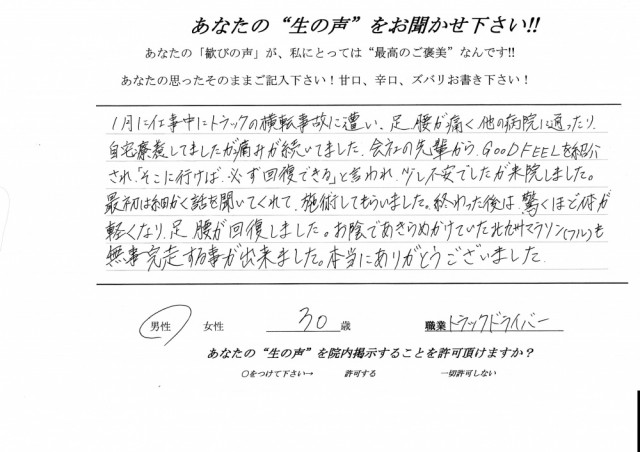 あなたの“生の声”をお聞かせ下さい!!
あなたの「歓びの声」が、私にとっては“最高のご褒美”なんです!!
あなたの思ったそのままご記入下さい！甘口、辛口、ズバリお書き下さい！
1月に仕事中にトラックの横転事故に遭い、足腰が痛く他の病院に通ったり、
自宅療養してましたが痛みが続いてました。会社の先輩から、GOODFEELを紹介
され、「そこに行けば、必ず回復できる」と言われ、少し不安でしたが来院しました。
最初は細かく話を聞いてくれて、施術してもらいました。終わった後は、驚くほど体が
軽くなり、足腰が回復しました。お陰であきらめかけていた北九州マラソン(フル)も
無事完走する事が出来ました。本当にありがとうございました。
男性 女性 30歳 職業 トラックドライバー
あなたの“生の声”を院内掲示することを許可頂けますか？
○をつけて下さい→ 許可する 一切許可しない